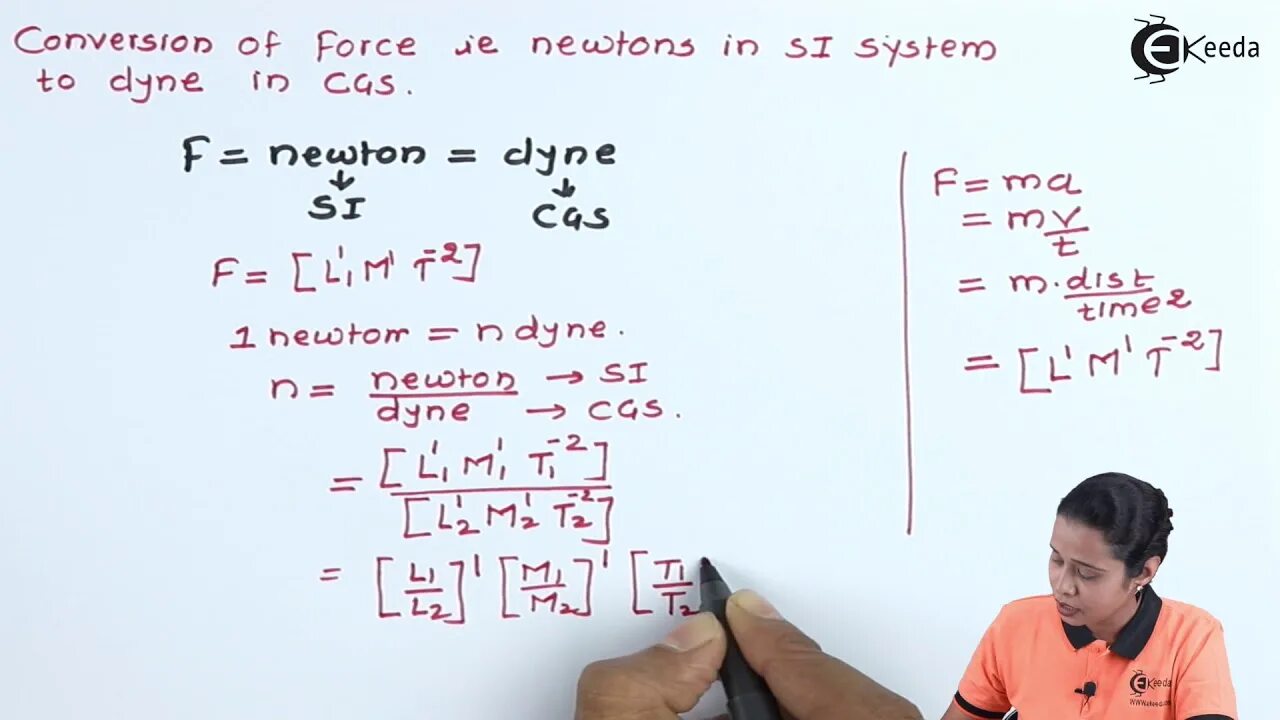 Conversion of Force ie newtons in SI system
to dyne in CGS.
EKeeda
F = newton = dyne
↓ ↓
SI CGS
F = [L¹₁ M¹ T⁻²]
1 newton = n dyne.
n = newton → SI
dyne → CGS.
= [L¹₁ M¹₁ T₁⁻²]
[L¹₂ M¹₂ T₂⁻²]
= [L₁/L₂]¹ [M₁/M₂]¹ [T₁/T₂
F = ma
= m v/t
= m. dist/time2
= [L¹ M¹ T⁻²]
EKeeda
www.ekeeda.com